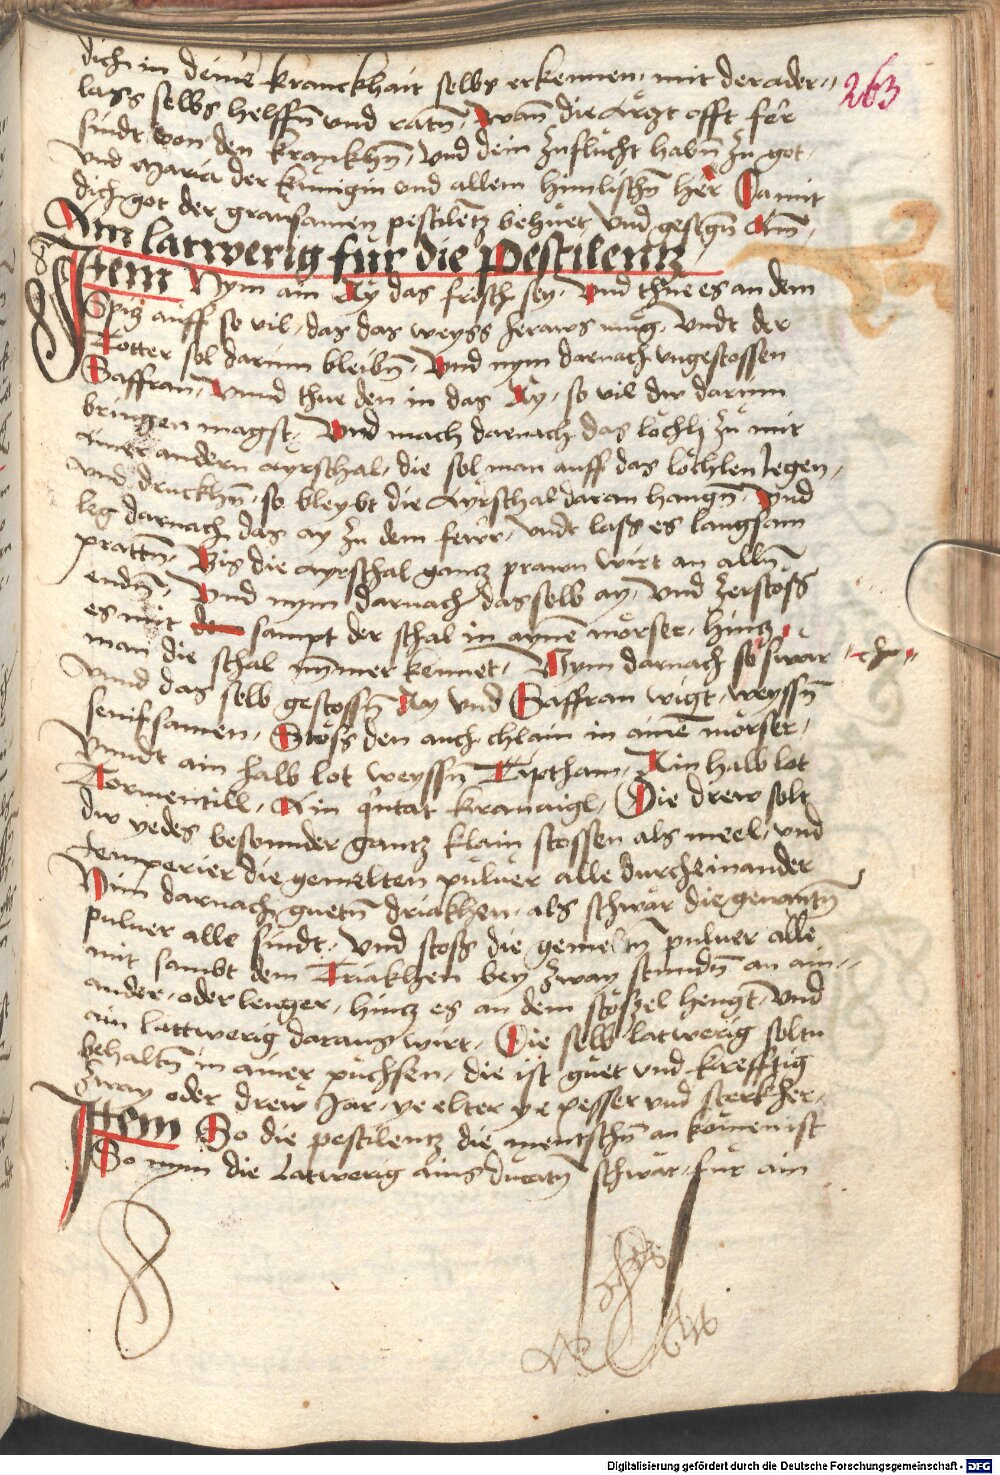 dich in deine kranckhait selbs erkennen, mit der ader-
263
lass selbs helffn̄ vnd ratn̄, Wan̄ die Artzt offt fer
sindt von den kranckhn̄, vnd dein zuflucht habn̄ zu got,
vnd Maria der künigin vnd allem himlischn̄ her Damit
dich got der grausamen pestilentz behüet, vnd gesegn̄ Am̄
Ain latwerig für die Pestilentz
Item Nym ain Ay das frisch sey, Vnd thue es an dem
Spitz auff so vil, das das weyss heraws mug, vndt der
Totter sol darinn bleibn̄, Vnd nym darnach vngestossen
Saffran, Vnnd thue den in das Ay, so vil dw darinn
bringen magst, Vnd mach darnach das löchlj zu mit
ainer andern ayrschal, die sol man auff das löchlen legen,
vnd druckhn̄, so bleybt die Ayrschal daran hangn̄, Vnd
leg darnach das ay zu dem fewr, vndt lass es langsam
prattn̄, Bis die ayrschal gantz prawn wirt an alln̄
endn̄, Vnd nym darnach dasselb ay, Vnd zerstoss
es mit sampt der schal in ayne mörser, hintz
man die schal nymmer kennet, Nym darnach so swar
vnnd das selb gestossn̄ Ay vnd Saffran wigt, weyssn̄
senifsamen, Stöss den auch chlain in aine mörser,
vnndt ain halb lot weyssn̄ Diptham, Ain halb lot
Tormentill, Ain q̄ntat kranaugl, Die drew solt
dw yedes besonnder gantz klain stossen als meel, vnd
temperier die gemelten puluer alle durcheinander
Nim darnach guetn̄ driakhen, als schwar die genantn̄
puluer alle sindt, Vnd stoss die gemeltn̄ puluer alle
mit sambt dem Triakhen bey zway stundn̄ an ain-
ander, oder lenger, hintz es an dem stössel hengt, Vnd
ain lattwerig daraus wirt, Die selb latwerig soltu
behaltn̄ in ainer püchsen, die ist guet vnd krefftig
zway oder drew Jar, ye elter ye pesser vnd sterkher,
Item So die pestilentz die menschn̄ an komen ist
So nym die Latwerig ains ducatn̄ schwar, für ain
Digitalisierung gefördert durch die Deutsche Forschungsgemeinschaft - DFG